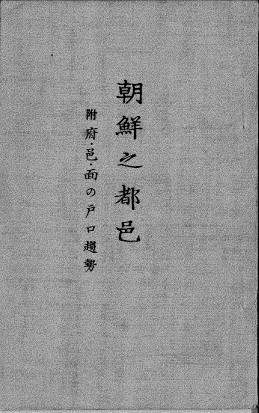 朝鮮之都邑
附府·邑·面の戸口趨勢